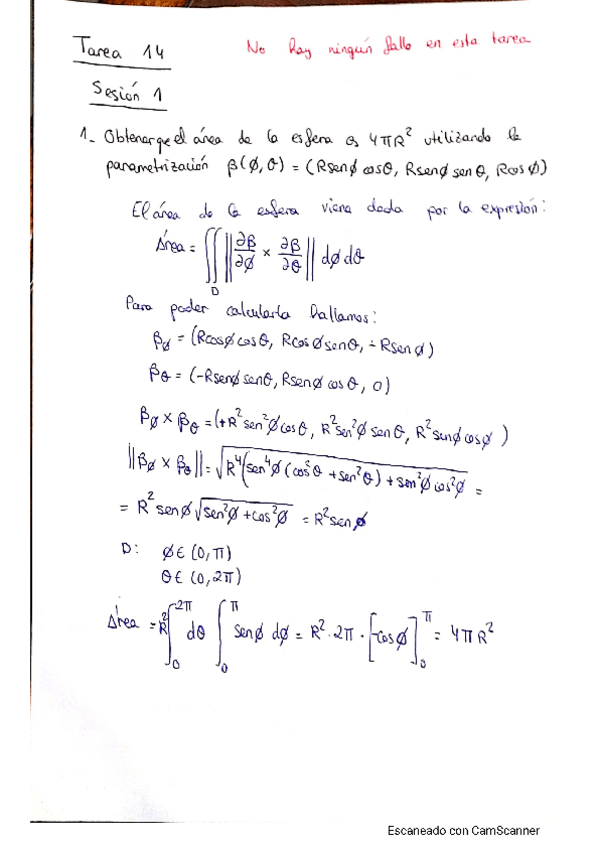 Tarea 14
No hay ningún fallo en esta tarea
Sesión 1
1- Obtener que el área de la esfera es 4πR² utilizando la
parametrización β(ϕ,θ) = (Rsenϕ cosθ, Rsenϕ senθ, Rcosϕ)
El área de la esfera viene dada por la expresión:
Área = ∬_D ‖∂β/∂ϕ × ∂β/∂θ‖ dϕdθ
Para poder calcularla hallamos:
β_ϕ = (Rcosϕ cosθ, Rcosϕ senθ, -Rsenϕ)
β_θ = (-Rsenϕ senθ, Rsenϕ cosθ, 0)
β_ϕ × β_θ = (+R²sen²ϕ cosθ, R²sen²ϕ senθ, R²senϕ cosϕ)
‖β_ϕ × β_θ‖ = √R⁴(sen⁴ϕ(cos²θ + sen²θ) + sen²ϕ cos²ϕ =
= R² senϕ √sen²ϕ + cos²ϕ = R² senϕ
D: ϕ ∈ (0, π)
θ ∈ (0, 2π)
Área = R² ∫₀^2π dθ ∫₀^π senϕ dϕ = R² · 2π · [-cosϕ]₀^π = 4πR²
Escaneado con CamScanner